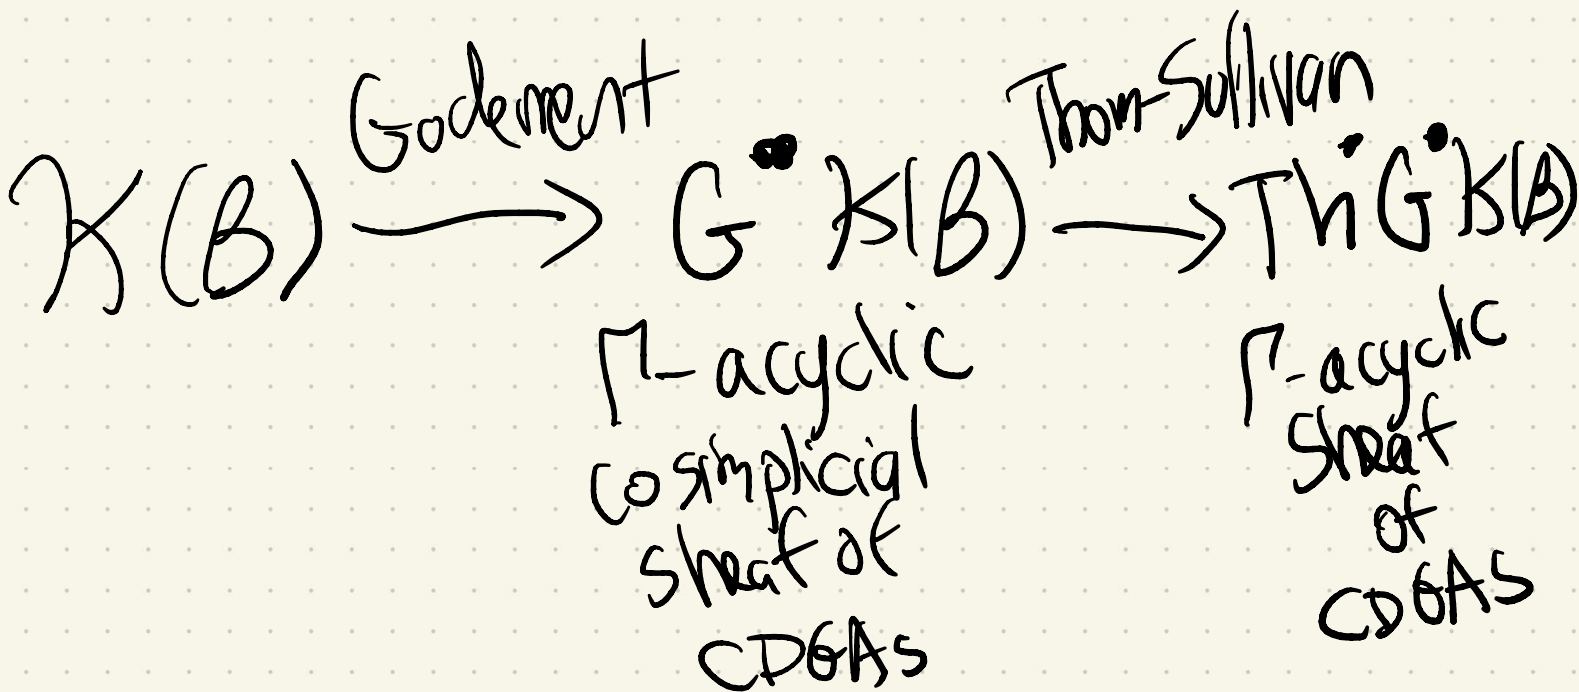 Godement
Thom-Sullivan
K(B) → G•• K(B) → Th• G• K(B)
Γ-acyclic
cosimplicial
sheaf of
CDGAs
Γ-acyclic
sheaf
of
CDGAS